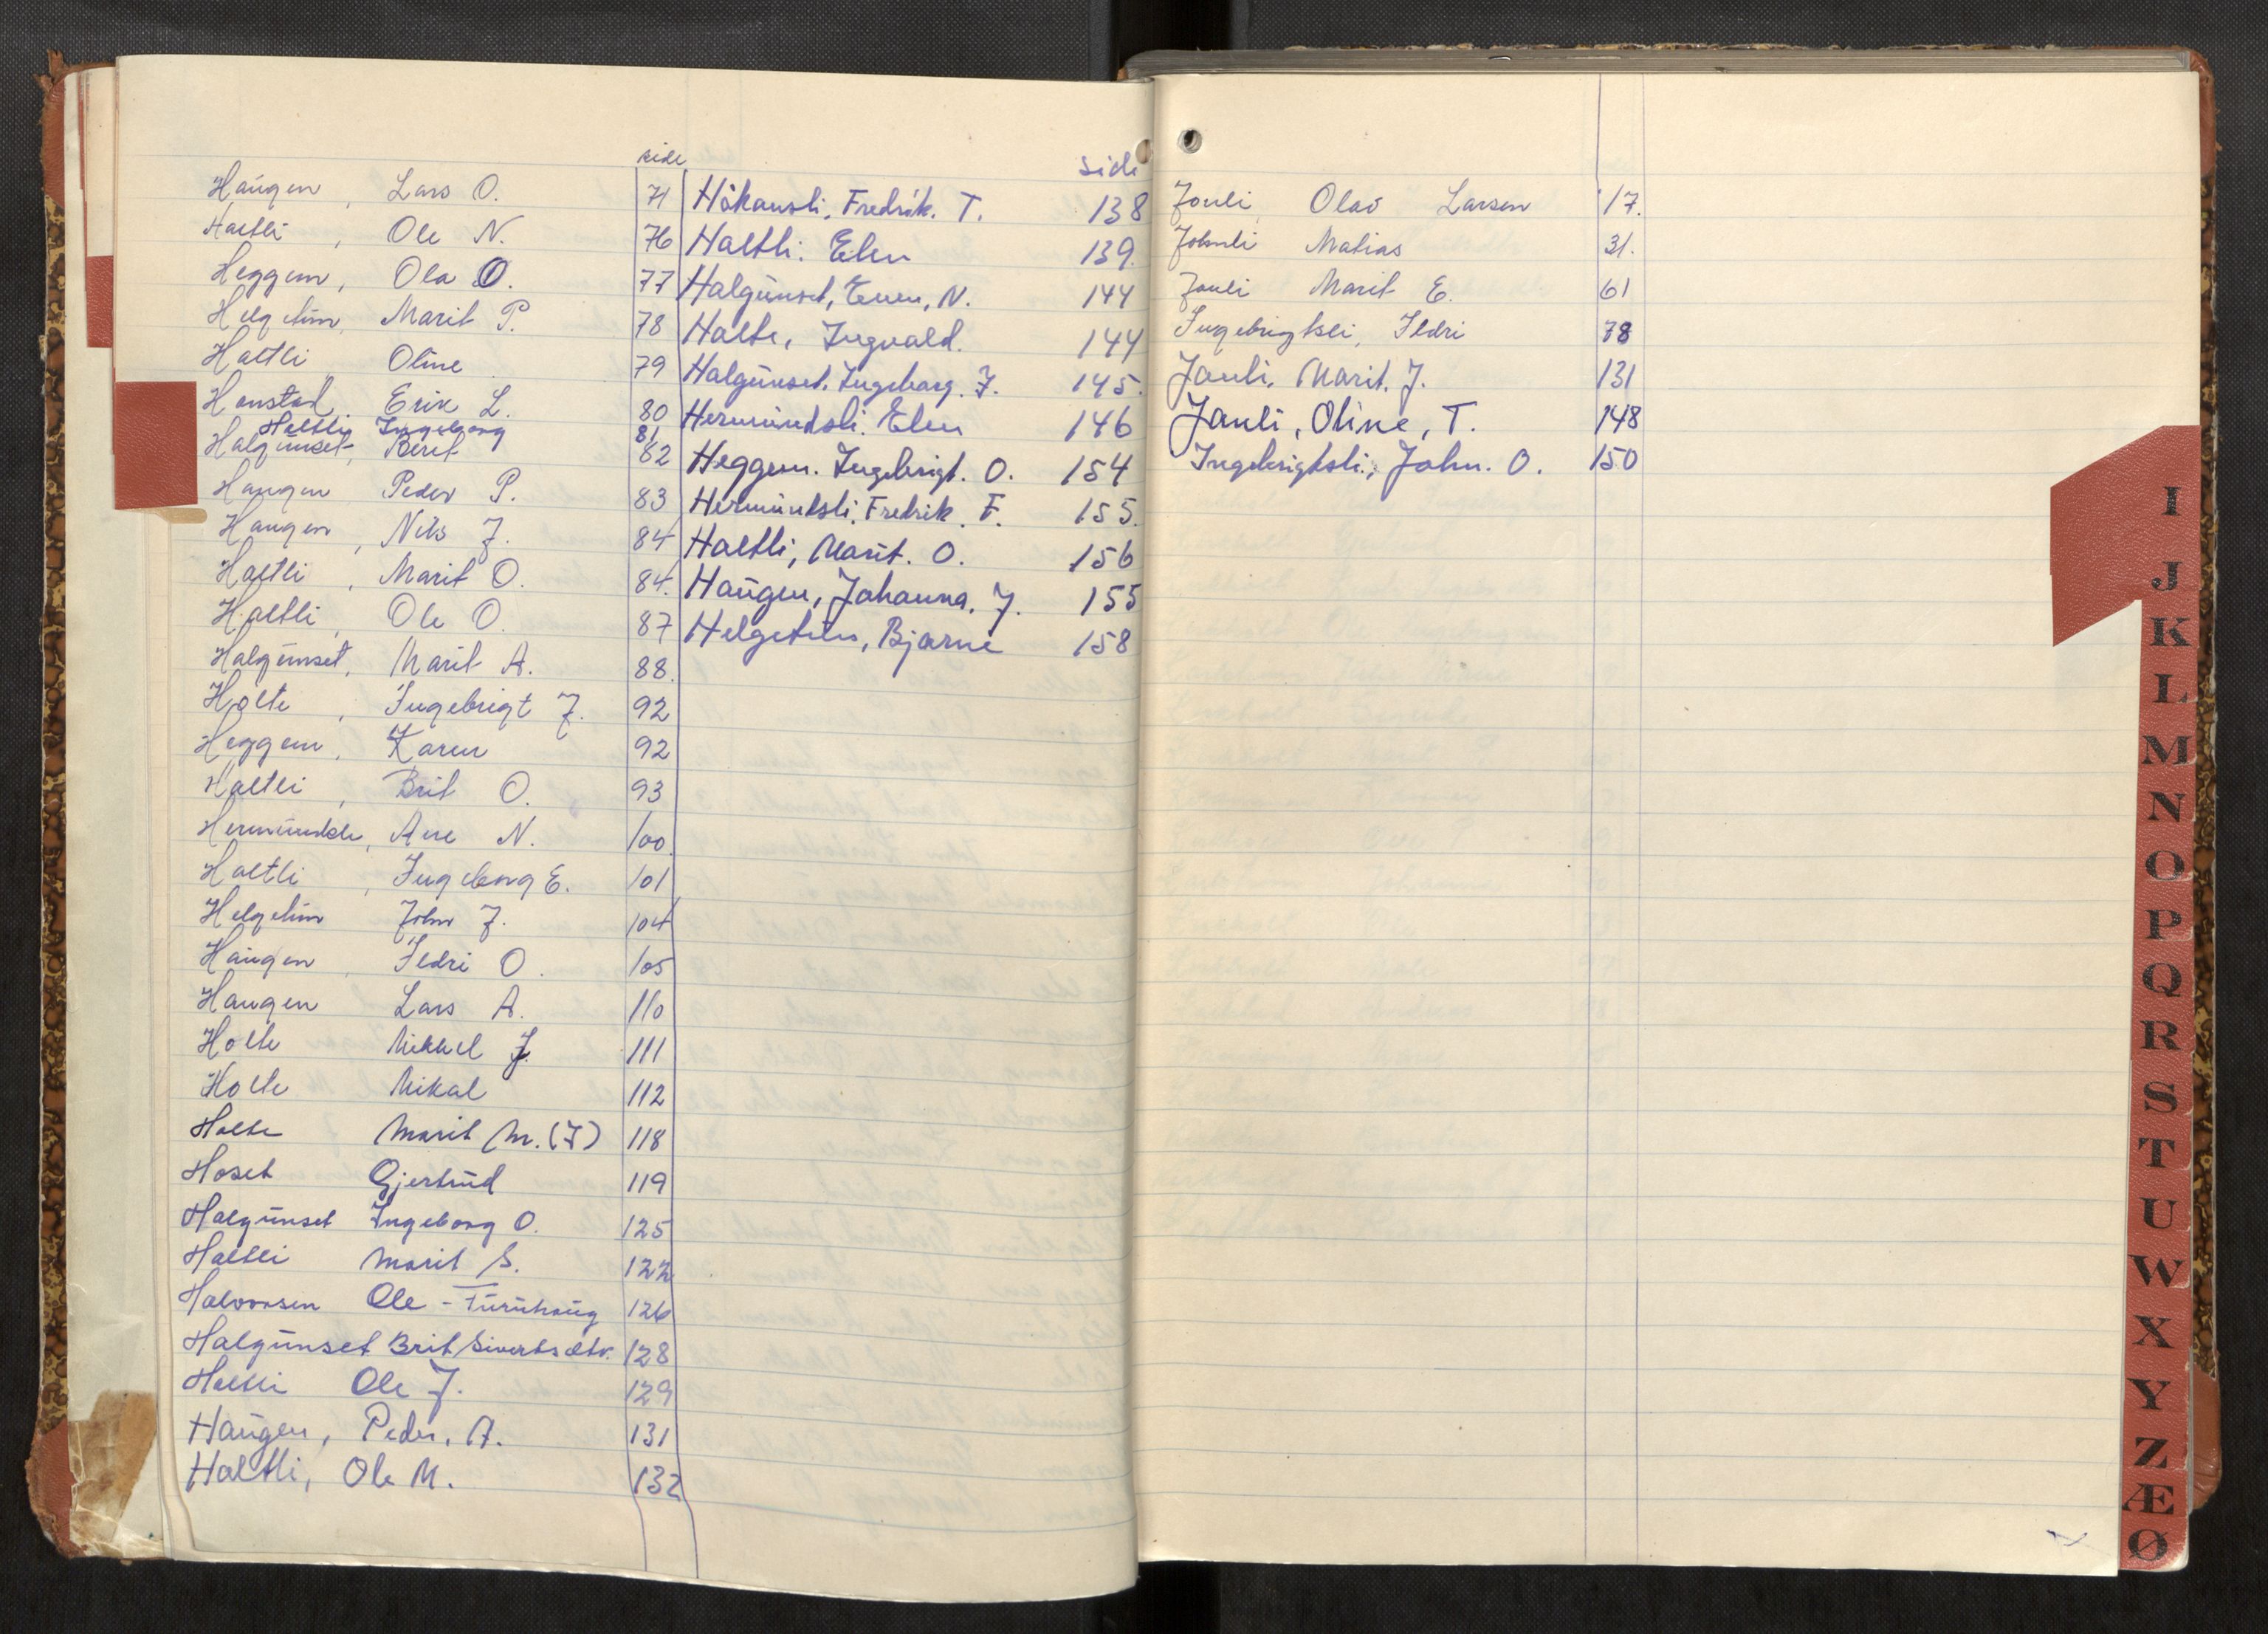 side
Haugen, Lars O. 71
Haltli, Ole N. 76
Heggem, Ola O. 77
Helgetun, Marit P. 78
Haltli Oline 79
Honstad Erik L. 80
Haltli Ingeborg 81
Halgunset, Berit 82
Haugen Peder P. 83
Haugen, Nils J. 84
Haltli, Marit O. 84.
Haltli, Ole O. 87
Halgunset, Marit A. 88.
Holte, Ingebrigt J. 92
Heggem, Karen 92
Haltli, Brit O. 93
Hermundsli, Ane N. 100.
Haltli, Ingeborg E. 101
Helgetun John J. 104
Haugen, Ildri O. 105
Haugen Lars A. 110
Holte Mikkel J. 111
Holte Mikal 112
Holte Marit M. (J) 118
Hoset Gjertrud 119
Halgunset Ingeborg O. 125
Haltli Marit S. 122
Halvorsen Ole - Furuhaug 126
Halgunset Brit Sivertsdtr. 128
Haltli Ole J. 129
Haugen, Peder. A. 131
Haltli, Ole M. 132
side
Håkansli, Fredrik. T. 138
Haltli. Elen 139.
Halgunset, Even, N. 144
Holte, Ingvald. 144
Halgunset. Ingeborg. J. 145.
Hermundsli. Elen 146
Heggem. Ingebrigt. O. 154
Hermundsli. Fredrik. F. 155.
Haltli, Marit. O. 156
Haugen, Johanna. J. 155
Helgetun, Bjarne 158
Jonli Olav Larsen 17.
Johnli Matias 31.
Jonli Marit E. 61
Ingebrigtsli, Ildri 78
Jonli, Marit. J. 131
Jonli, Oline, T. 148
Ingebrigtsli, John. O. 150
I
J
K
L
M
N
O
P
Q
R
S
T
U
W
X
Y
Z
Æ
Ø